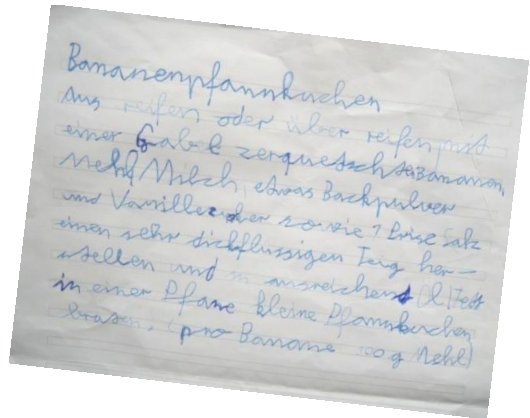 Bananenpfannkuchen
Aus reifen oder über reifen mit
einer Gabel zerquetschte Bananen,
Mehl, Milch, etwas Backpulver
und Vanillezucker sowie 1 Prise Salz
einen sehr dickflüssigen Teig her-
stellen und in ausreichend
in einer Pfane kleine Pfannkuchen
braten. (pro Banane 100 g Mehl)